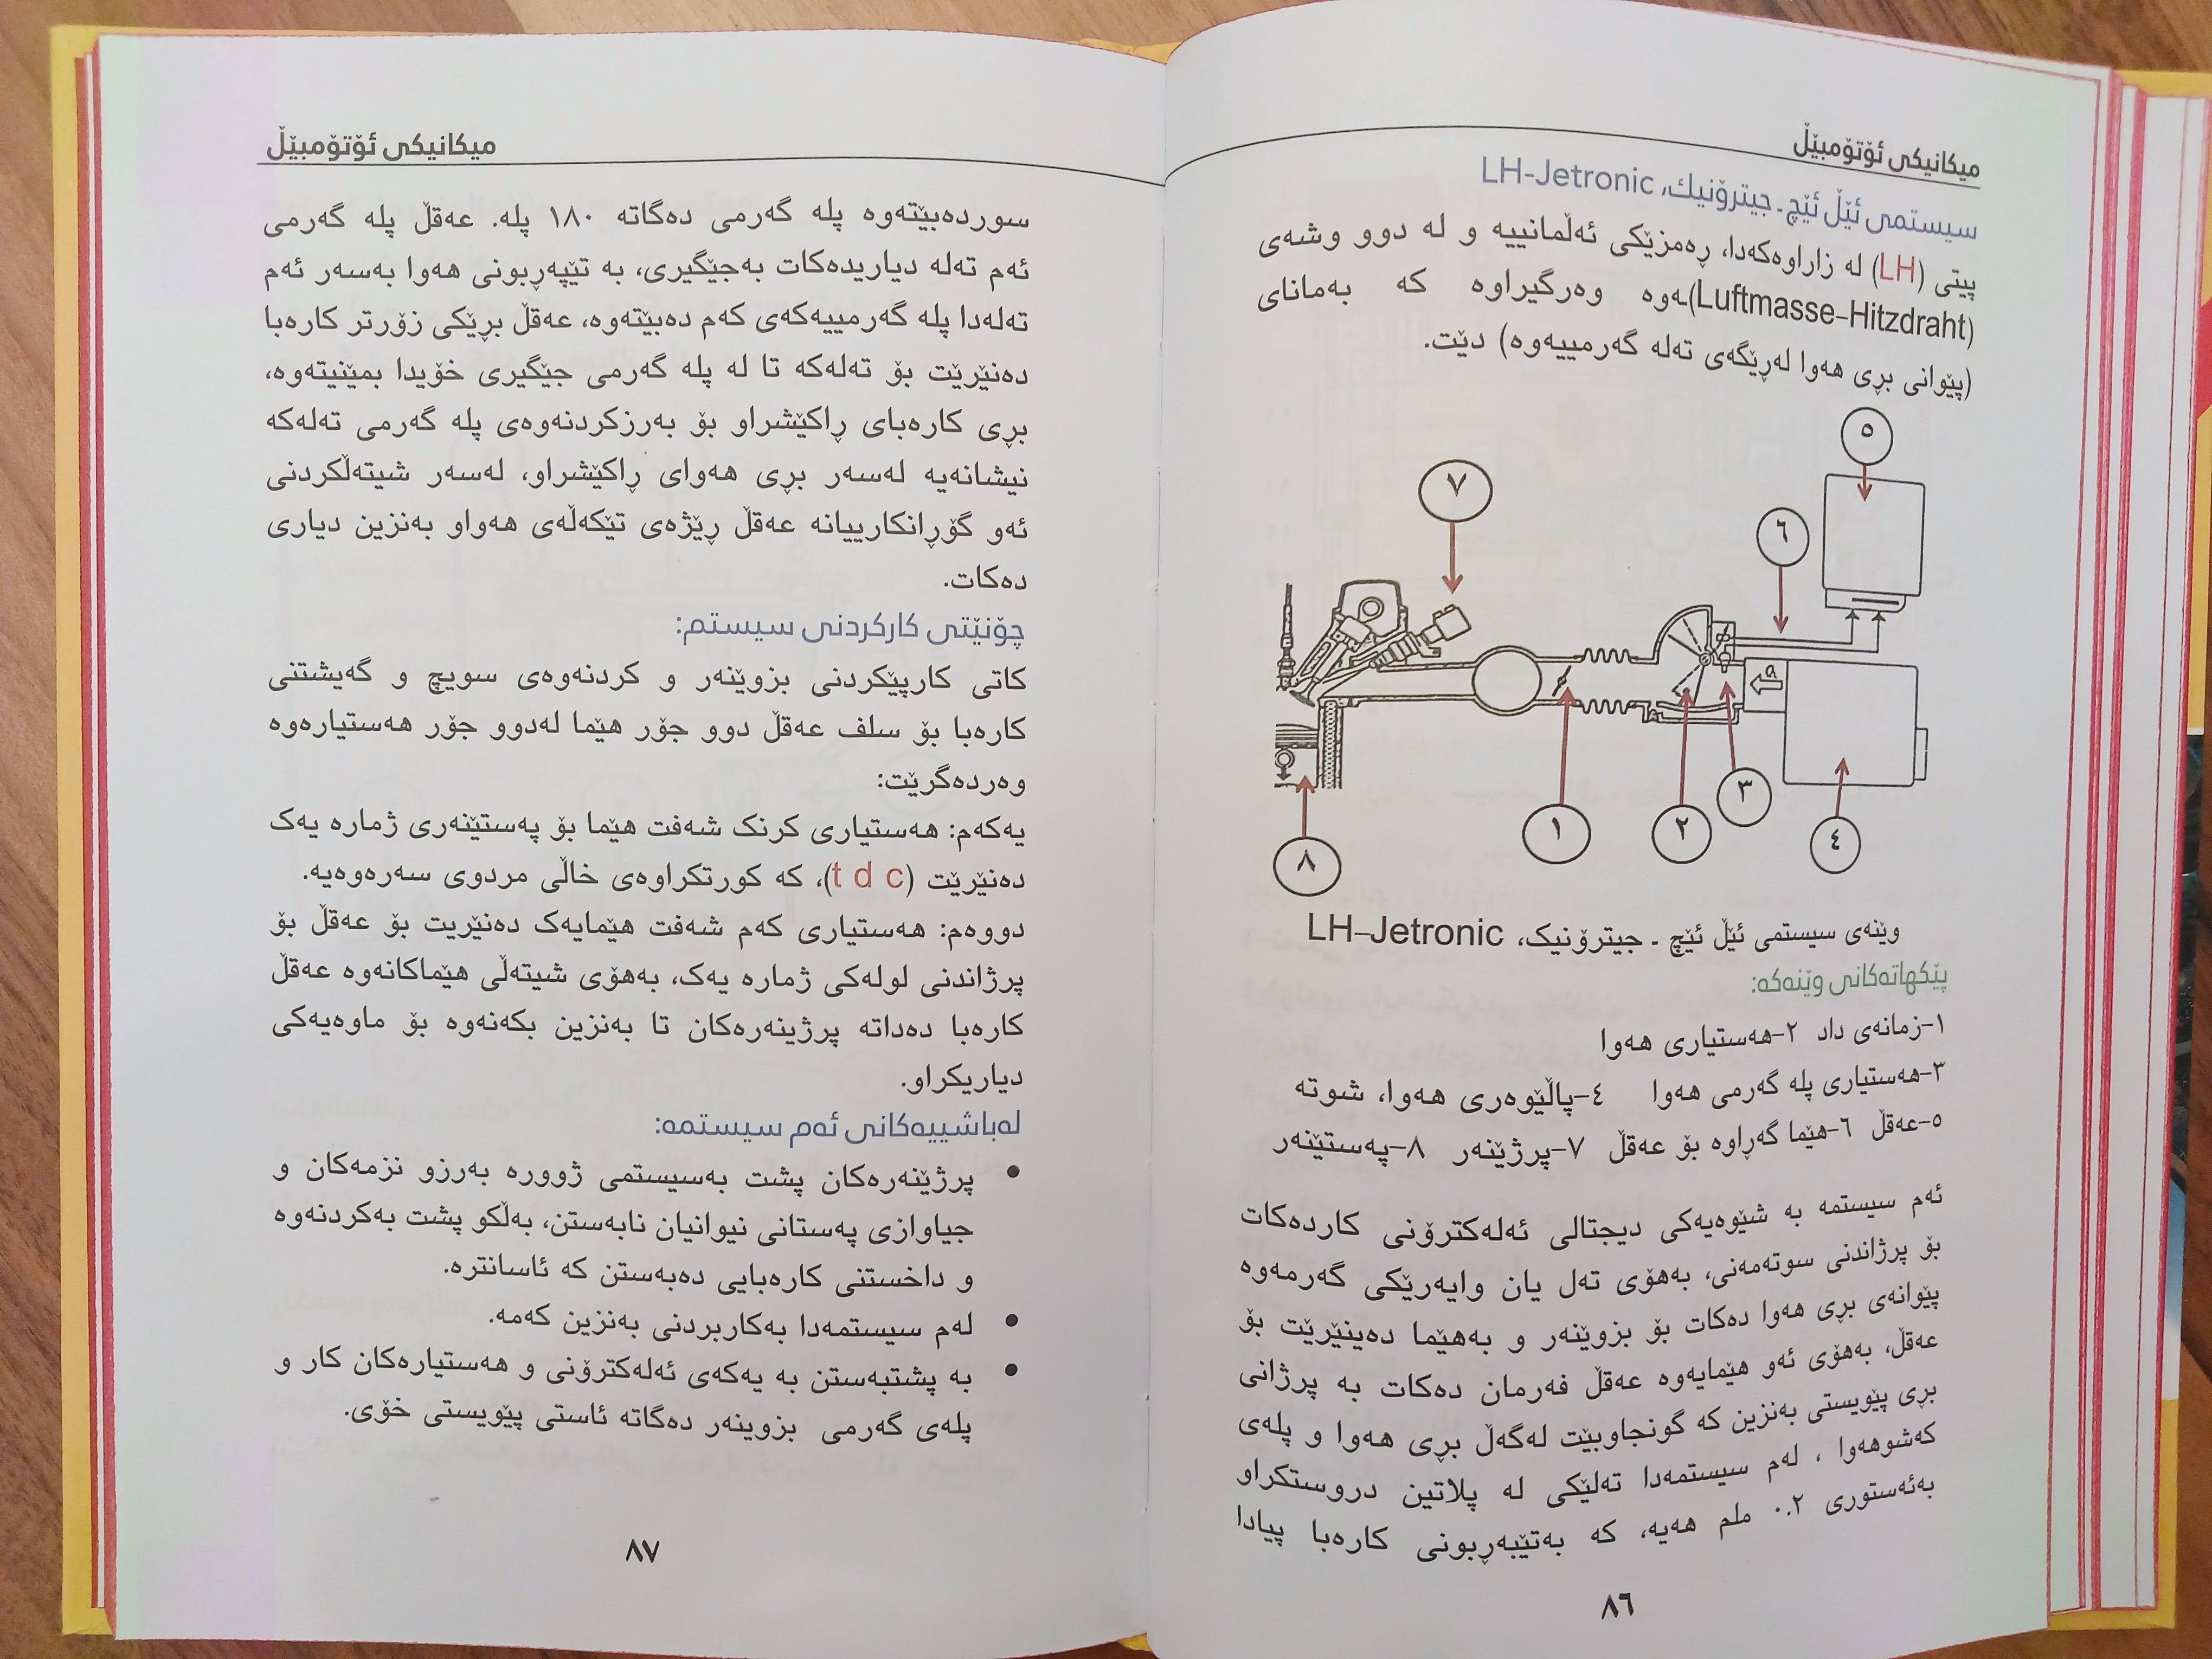 میکانیکی ئۆتۆمبێڵ
سیستمی ئێڵ ئێچ ـ جیترۆنیك، LH-Jetronic
پیتی (LH) لە زاراوەکەدا، ڕەمزێکی ئەڵمانییە و لە دوو وشەی
(Luftmasse–Hitzdraht)ـەوە وەرگیراوە کە بەمانای
(پێوانی بڕی هەوا لەڕێگەی تەلە گەرمییەوە) دێت.
٥
٧
٦
٣
١
٢
٤
٨
وێنەی سیستمی ئێڵ ئێچ ـ جیترۆنیک، LH–Jetronic
پێکهاتەکانی وێنەکە:
١–زمانەی داد ٢–هەستیاری هەوا
٣–هەستیاری پلە گەرمی هەوا ٤–پاڵێوەری هەوا، شوتە
٥–عەقڵ ٦–هێما گەڕاوە بۆ عەقڵ ٧–پرژێنەر ٨–پەستێنەر
ئەم سیستمە بە شێوەیەکی دیجتالی ئەلەکترۆنی کاردەکات
بۆ پرژاندنی سوتەمەنی، بەهۆی تەل یان وایەرێکی گەرمەوە
پێوانەی بڕی هەوا دەکات بۆ بزوێنەر و بەهێما دەینێرێت بۆ
عەقڵ، بەهۆی ئەو هێمایەوە عەقڵ فەرمان دەکات بە پرژانی
بڕی پێویستی بەنزین کە گونجاوبێت لەگەڵ بڕی هەوا و پلەی
کەشوهەوا ، لەم سیستمەدا تەلێکی لە پلاتین دروستکراو
بەئەستوری ٠.٢ ملم هەیە، کە بەتێبەڕبونی کارەبا پیادا
٨٦
میکانیکی ئۆتۆمبێڵ
سوردەبێتەوە پلە گەرمی دەگاتە ١٨٠ پلە. عەقڵ پلە گەرمی
ئەم تەلە دیاریدەکات بەجێگیری، بە تێپەڕبونی هەوا بەسەر ئەم
تەلەدا پلە گەرمییەکەی کەم دەبێتەوە، عەقڵ بڕێکی زۆرتر کارەبا
دەنێرێت بۆ تەلەکە تا لە پلە گەرمی جێگیری خۆیدا بمێنیتەوە،
بڕی کارەبای ڕاکێشراو بۆ بەرزکردنەوەی پلە گەرمی تەلەکە
نیشانەیە لەسەر بڕی هەوای ڕاکێشراو، لەسەر شیتەڵکردنی
ئەو گۆڕانکارییانە عەقڵ ڕێژەی تێکەڵەی هەواو بەنزین دیاری
دەکات.
چۆنێتی کارکردنی سیستم:
کاتی کارپێکردنی بزوێنەر و کردنەوەی سویچ و گەیشتنی
کارەبا بۆ سلف عەقڵ دوو جۆر هێما لەدوو جۆر هەستیارەوە
وەردەگرێت:
یەکەم: هەستیاری کرنک شەفت هێما بۆ پەستێنەری ژمارە یەک
دەنێرێت (t d c)، کە کورتکراوەی خاڵی مردوی سەرەوەیە.
دووەم: هەستیاری کەم شەفت هێمایەک دەنێریت بۆ عەقڵ بۆ
پرژاندنی لولەکی ژمارە یەک، بەهۆی شیتەڵی هێماکانەوە عەقڵ
کارەبا دەداتە پرژینەرەکان تا بەنزین بکەنەوە بۆ ماوەیەکی
دیاریکراو.
لەباشییەکانی ئەم سیستمە:
• پرژێنەرەکان پشت بەسیستمی ژوورە بەرزو نزمەکان و
جیاوازی پەستانی نیوانیان نابەستن، بەڵکو پشت بەکردنەوە
و داخستنی کارەبایی دەبەستن کە ئاسانترە.
• لەم سیستمەدا بەکاربردنی بەنزین کەمە.
• بە پشتبەستن بە یەکەی ئەلەکترۆنی و هەستیارەکان کار و
پلەی گەرمی بزوینەر دەگاتە ئاستی پێویستی خۆی.
٨٧